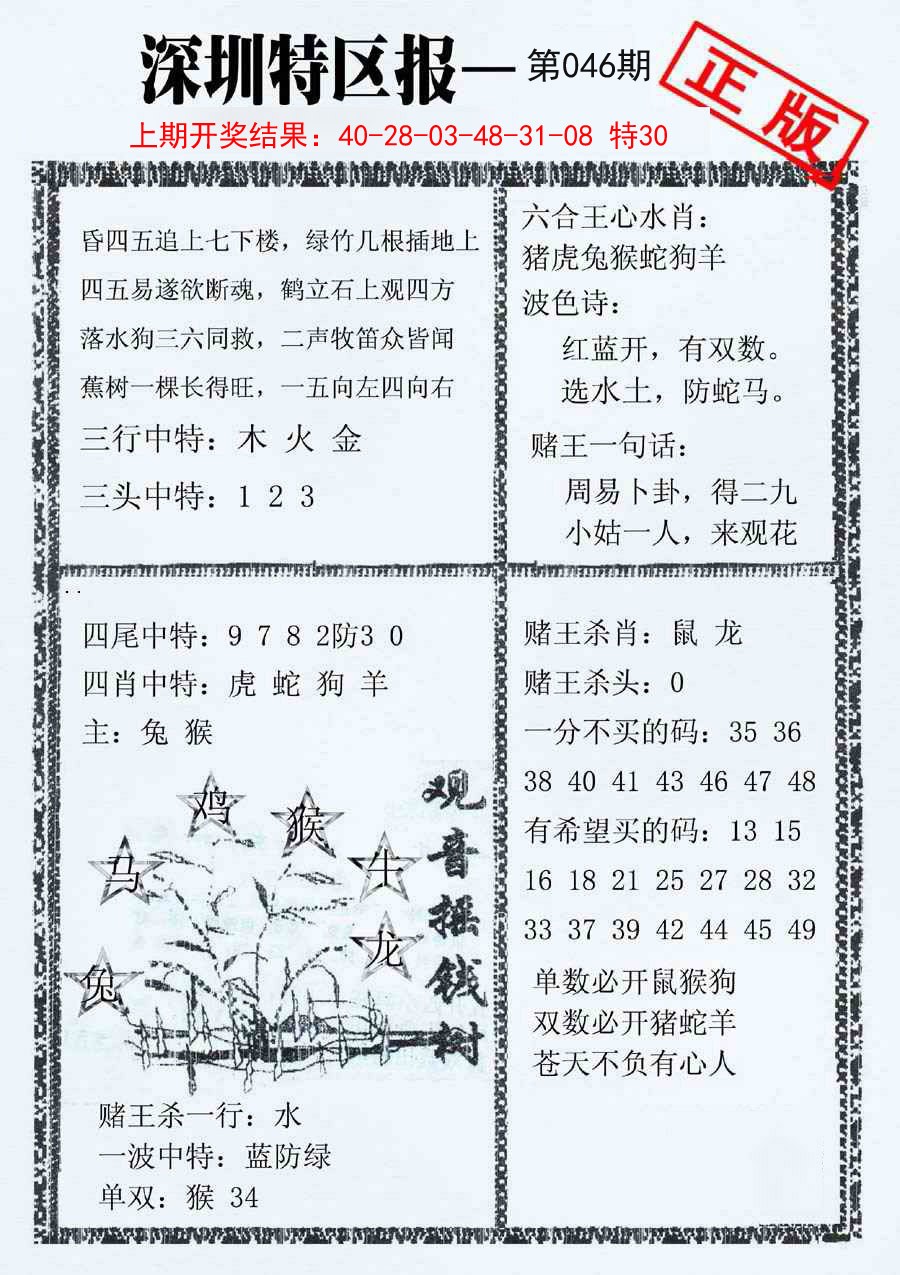 深圳特区报—第046期
正版
上期开奖结果：40-28-03-48-31-08 特30
昏四五追上七下楼，绿竹几根插地上
四五易遂欲断魂，鹤立石上观四方
落水狗三六同救，二声牧笛众皆闻
蕉树一棵长得旺，一五向左四向右
三行中特：木 火 金
三头中特：1 2 3
六合王心水肖：
猪虎兔猴蛇狗羊
波色诗：
红蓝开，有双数。
选水土，防蛇马。
赌王一句话：
周易卜卦，得二九
小姑一人，来观花
四尾中特：9 7 8 2防3 0
四肖中特：虎 蛇 狗 羊
主：兔 猴
鸡
猴
马
牛
龙
兔
观音摇钱树
赌王杀一行：水
一波中特：蓝防绿
单双：猴 34
赌王杀肖：鼠 龙
赌王杀头：0
一分不买的码：35 36
38 40 41 43 46 47 48
有希望买的码：13 15
16 18 21 25 27 28 32
33 37 39 42 44 45 49
单数必开鼠猴狗
双数必开猪蛇羊
苍天不负有心人